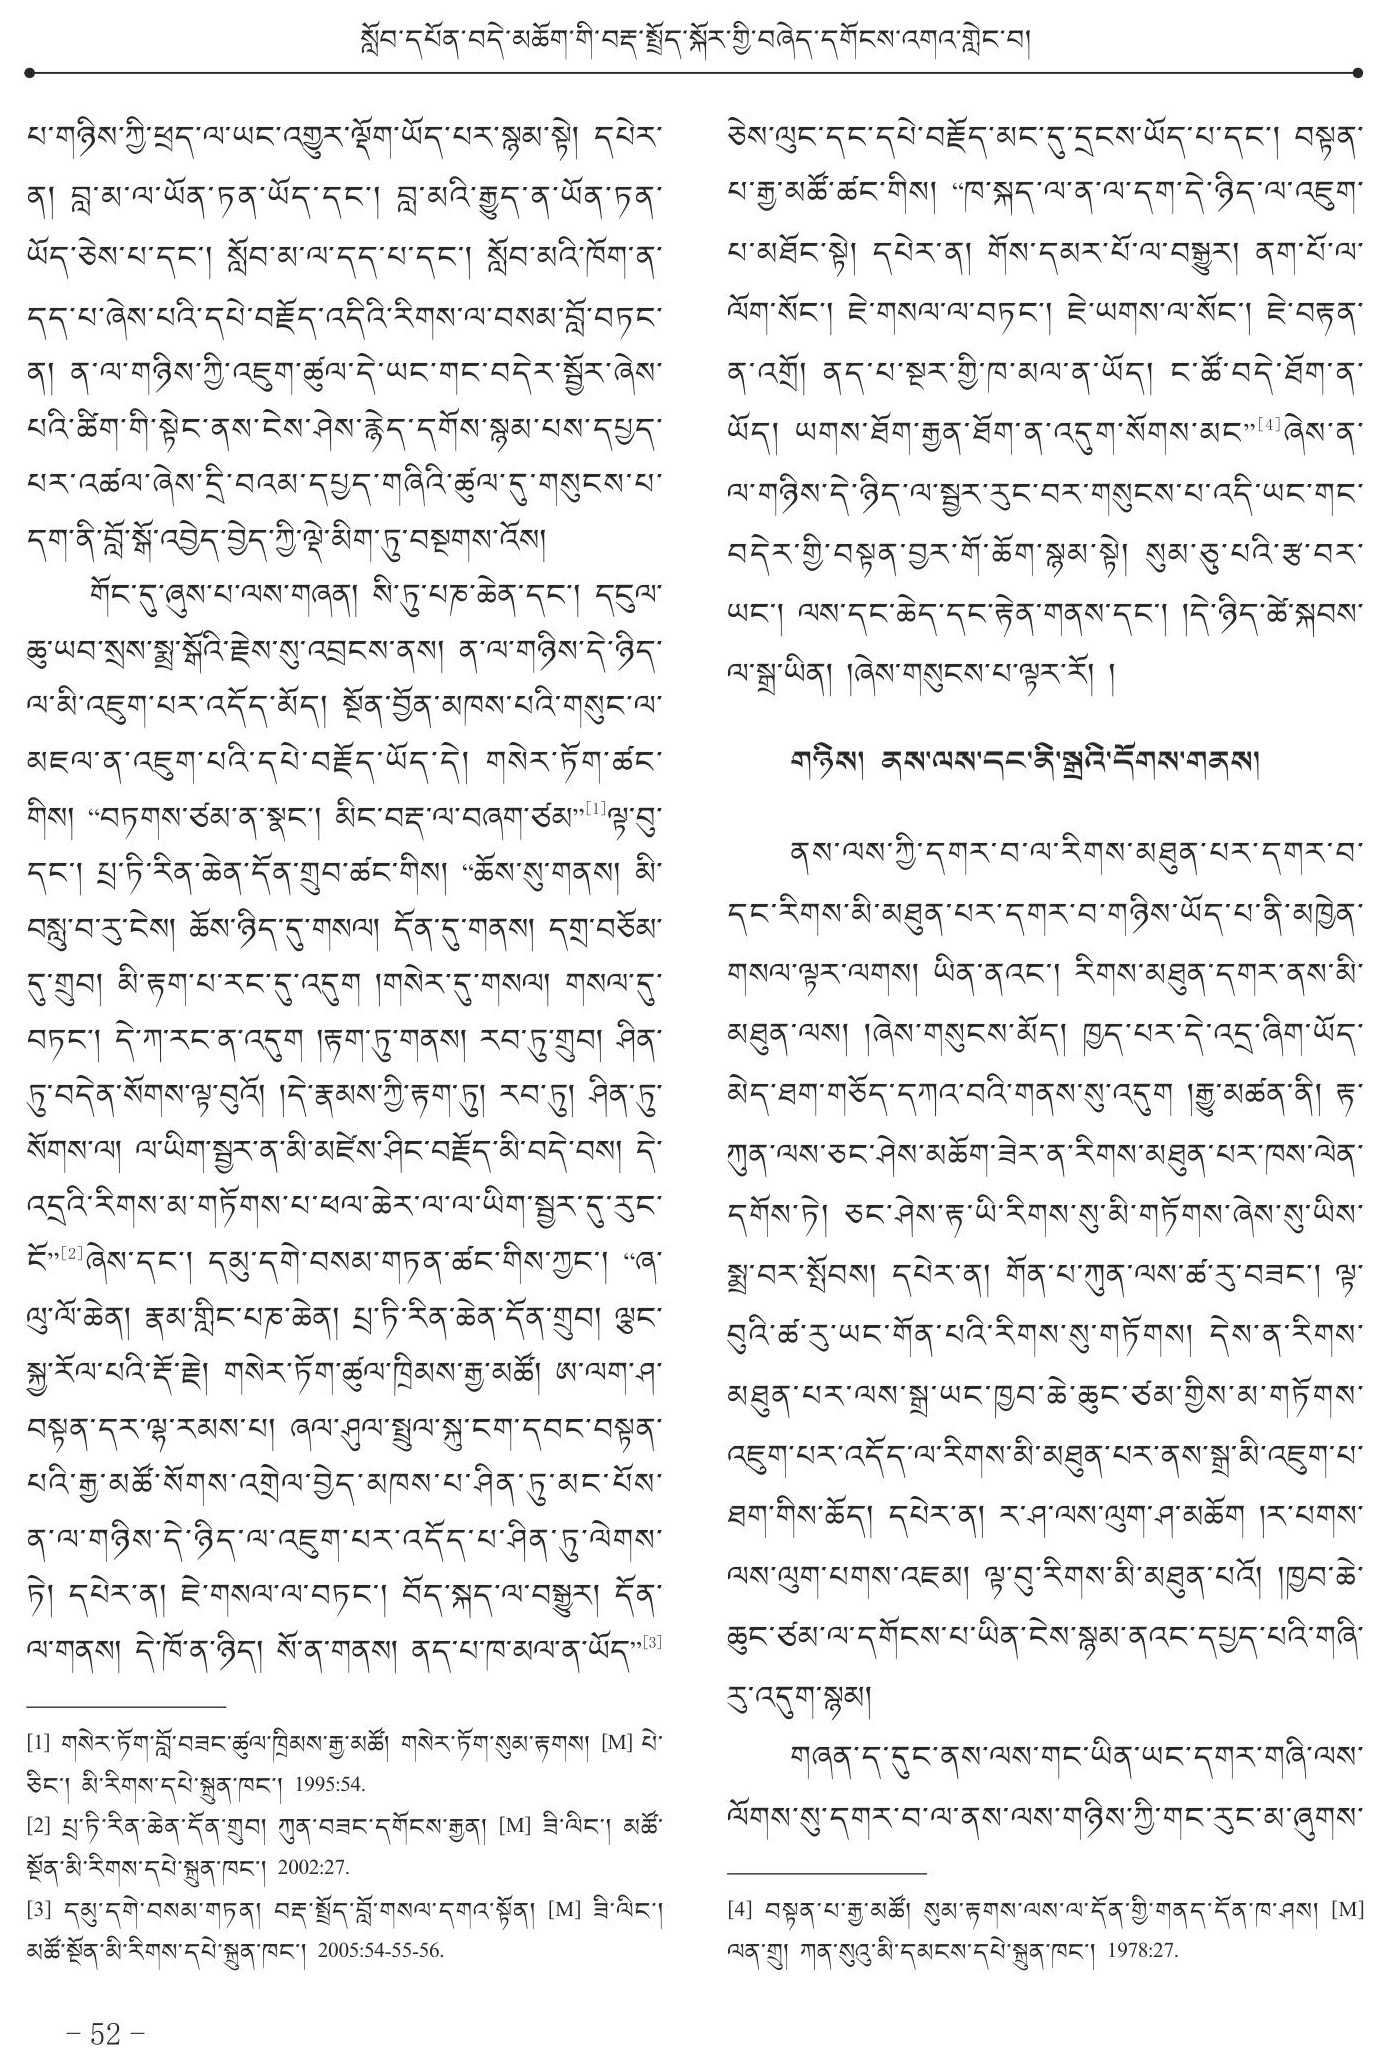 སློབ་དཔོན་བདེ་མཆོག་གི་བརྡ་སྤྲོད་སྐོར་གྱི་བཞེད་དགོངས་འགའ་གླེང་བ།
པ་གཉིས་ཀྱི་ཕྲད་ལ་ཡང་འགྱུར་ལྡོག་ཡོད་པར་སྙམ་སྟེ། དཔེར་
ན། བླ་མ་ལ་ཡོན་ཏན་ཡོད་དང་། བླ་མའི་རྒྱུད་ན་ཡོན་ཏན་
ཡོད་ཅེས་པ་དང་། སློབ་མ་ལ་དད་པ་དང་། སློབ་མའི་ཁོག་ན་
དད་པ་ཞེས་པའི་དཔེ་བརྗོད་འདིའི་རིགས་ལ་བསམ་བློ་བཏང་
ན། ན་ལ་གཉིས་ཀྱི་འཇུག་ཚུལ་དེ་ཡང་གང་བདེར་སྦྱོར་ཞེས་
པའི་ཚིག་གི་སྟེང་ནས་ངེས་ཤེས་རྙེད་དགོས་སྙམ་པས་དཔྱད་
པར་འཚལ་ཞེས་དྲི་བའམ་དཔྱད་གཞིའི་ཚུལ་དུ་གསུངས་པ་
དག་ནི་བློ་སྒོ་འབྱེད་བྱེད་ཀྱི་ལྡེ་མིག་ཏུ་བསྔགས་འོས།
གོང་དུ་ཞུས་པ་ལས་གཞན། སི་ཏུ་པཎ་ཆེན་དང་། དངུལ་
ཆུ་ཡབ་སྲས་སྨྲ་སྒོའི་རྗེས་སུ་འབྲངས་ནས། ན་ལ་གཉིས་དེ་ཉིད་
ལ་མི་འཇུག་པར་འདོད་མོད། སྔོན་བྱོན་མཁས་པའི་གསུང་ལ་
མཇལ་ན་འཇུག་པའི་དཔེ་བརྗོད་ཡོད་དེ། གསེར་ཏོག་ཚང་
གིས། “བཏགས་ཙམ་ན་སྣང་། མིང་བརྡ་ལ་བཞག་ཙམ”[1]ལྟ་བུ་
དང་། པྲ་ཏི་རིན་ཆེན་དོན་གྲུབ་ཚང་གིས། “ཆོས་སུ་གནས། མི་
བསླུ་བ་རུ་ངེས། ཆོས་ཉིད་དུ་གསལ། དོན་དུ་གནས། དགྲ་བཅོམ་
དུ་གྲུབ། མི་རྟག་པ་རང་དུ་འདུག །གསེར་དུ་གསལ། གསལ་དུ་
བཏང་། དེ་ཀ་རང་ན་འདུག །རྟག་ཏུ་གནས། རབ་ཏུ་གྲུབ། ཤིན་
ཏུ་བདེན་སོགས་ལྟ་བུའོ། །དེ་རྣམས་ཀྱི་རྟག་ཏུ། རབ་ཏུ། ཤིན་ཏུ་
སོགས་ལ། ལ་ཡིག་སྦྱར་ན་མི་མཛེས་ཤིང་བརྗོད་མི་བདེ་བས། དེ་
འདྲའི་རིགས་མ་གཏོགས་པ་ཕལ་ཆེར་ལ་ལ་ཡིག་སྦྱར་དུ་རུང་
ངོ”[2]ཞེས་དང་། དམུ་དགེ་བསམ་གཏན་ཚང་གིས་ཀྱང་། “ཞ་
ལུ་ལོ་ཆེན། རྣམ་གླིང་པཎ་ཆེན། པྲ་ཏི་རིན་ཆེན་དོན་གྲུབ། ལྕང་
སྐྱ་རོལ་པའི་རྡོ་རྗེ། གསེར་ཏོག་ཚུལ་ཁྲིམས་རྒྱ་མཚོ། ཨ་ལག་ཤ་
བསྟན་དར་ལྷ་རམས་པ། ཞལ་ཤུལ་སྤྲུལ་སྐུ་ངག་དབང་བསྟན་
པའི་རྒྱ་མཚོ་སོགས་འགྲེལ་བྱེད་མཁས་པ་ཤིན་ཏུ་མང་པོས་
ན་ལ་གཉིས་དེ་ཉིད་ལ་འཇུག་པར་འདོད་པ་ཤིན་ཏུ་ལེགས་
ཏེ། དཔེར་ན། ཇེ་གསལ་ལ་བཏང་། བོད་སྐད་ལ་བསྒྱུར། དོན་
ལ་གནས། དེ་ཁོ་ན་ཉིད། སོ་ན་གནས། ནད་པ་ཁ་མལ་ན་ཡོད”[3]
[1] གསེར་ཏོག་བློ་བཟང་ཚུལ་ཁྲིམས་རྒྱ་མཚོ། གསེར་ཏོག་སུམ་རྟགས། [M] པེ་
ཅིང་། མི་རིགས་དཔེ་སྐྲུན་ཁང་། 1995:54.
[2] པྲ་ཏི་རིན་ཆེན་དོན་གྲུབ། ཀུན་བཟང་དགོངས་རྒྱན། [M] ཟི་ལིང་། མཚོ་
སྔོན་མི་རིགས་དཔེ་སྐྲུན་ཁང་། 2002:27.
[3] དམུ་དགེ་བསམ་གཏན། བརྡ་སྤྲོད་བློ་གསལ་དགའ་སྟོན། [M] ཟི་ལིང་།
མཚོ་སྔོན་མི་རིགས་དཔེ་སྐྲུན་ཁང་། 2005:54-55-56.
ཅེས་ལུང་དང་དཔེ་བརྗོད་མང་དུ་དྲངས་ཡོད་པ་དང་། བསྟན་
པ་རྒྱ་མཚོ་ཚང་གིས། “ཁ་སྐད་ལ་ན་ལ་དག་དེ་ཉིད་ལ་འཇུག་
པ་མཐོང་སྟེ། དཔེར་ན། གོས་དམར་པོ་ལ་བསྒྱུར། ནག་པོ་ལ་
ལོག་སོང་། ཇེ་གསལ་ལ་བཏང་། ཇེ་ཡགས་ལ་སོང་། ཇེ་བརྟན་
ན་འགྲོ། ནད་པ་སྔར་གྱི་ཁ་མལ་ན་ཡོད། ང་ཚོ་བདེ་ཐོག་ན་
ཡོད། ཡགས་ཐོག་རྒྱན་ཐོག་ན་འདུག་སོགས་མང”[4]ཞེས་ན་
ལ་གཉིས་དེ་ཉིད་ལ་སྦྱར་རུང་བར་གསུངས་པ་འདི་ཡང་གང་
བདེར་གྱི་བསྟན་བྱར་གོ་ཆོག་སྙམ་སྟེ། སུམ་ཅུ་པའི་རྩ་བར་
ཡང་། ལས་དང་ཆེད་དང་རྟེན་གནས་དང་། །དེ་ཉིད་ཚེ་སྐབས་
ལ་སྒྲ་ཡིན། །ཞེས་གསུངས་པ་ལྟར་རོ། །
གཉིས། ནས་ལས་དང་ནི་སྒྲའི་དོགས་གནས།
ནས་ལས་ཀྱི་དགར་བ་ལ་རིགས་མཐུན་པར་དགར་བ་
དང་རིགས་མི་མཐུན་པར་དགར་བ་གཉིས་ཡོད་པ་ནི་མཁྱེན་
གསལ་ལྟར་ལགས། ཡིན་ནའང་། རིགས་མཐུན་དགར་ནས་མི་
མཐུན་ལས། །ཞེས་གསུངས་མོད། ཁྱད་པར་དེ་འདྲ་ཞིག་ཡོད་
མེད་ཐག་གཅོད་དཀའ་བའི་གནས་སུ་འདུག །རྒྱུ་མཚན་ནི། རྟ་
ཀུན་ལས་ཅང་ཤེས་མཆོག་ཟེར་ན་རིགས་མཐུན་པར་ཁས་ལེན་
དགོས་ཏེ། ཅང་ཤེས་རྟ་ཡི་རིགས་སུ་མི་གཏོགས་ཞེས་སུ་ཡིས་
སྨྲ་བར་སྤོབས། དཔེར་ན། གོན་པ་ཀུན་ལས་ཚ་རུ་བཟང་། ལྟ་
བུའི་ཚ་རུ་ཡང་གོན་པའི་རིགས་སུ་གཏོགས། དེས་ན་རིགས་
མཐུན་པར་ལས་སྒྲ་ཡང་ཁྱབ་ཆེ་ཆུང་ཙམ་གྱིས་མ་གཏོགས་
འཇུག་པར་འདོད་ལ་རིགས་མི་མཐུན་པར་ནས་སྒྲ་མི་འཇུག་པ་
ཐག་གིས་ཆོད། དཔེར་ན། ར་ཤ་ལས་ལུག་ཤ་མཆོག །ར་པགས་
ལས་ལུག་པགས་འཇམ། ལྟ་བུ་རིགས་མི་མཐུན་པའོ། །ཁྱབ་ཆེ་
ཆུང་ཙམ་ལ་དགོངས་པ་ཡིན་ངེས་སྙམ་ནའང་དཔྱད་པའི་གཞི་
རུ་འདུག་སྙམ།
གཞན་ད་དུང་ནས་ལས་གང་ཡིན་ཡང་དགར་གཞི་ལས་
ལོགས་སུ་དགར་བ་ལ་ནས་ལས་གཉིས་ཀྱི་གང་རུང་མ་ཞུགས་
[4] བསྟན་པ་རྒྱ་མཚོ། སུམ་རྟགས་ལས་ལ་དོན་གྱི་གནད་དོན་ཁ་ཤས། [M]
ལན་གྲུ། ཀན་སུའུ་མི་དམངས་དཔེ་སྐྲུན་ཁང་། 1978:27.
– 52 –